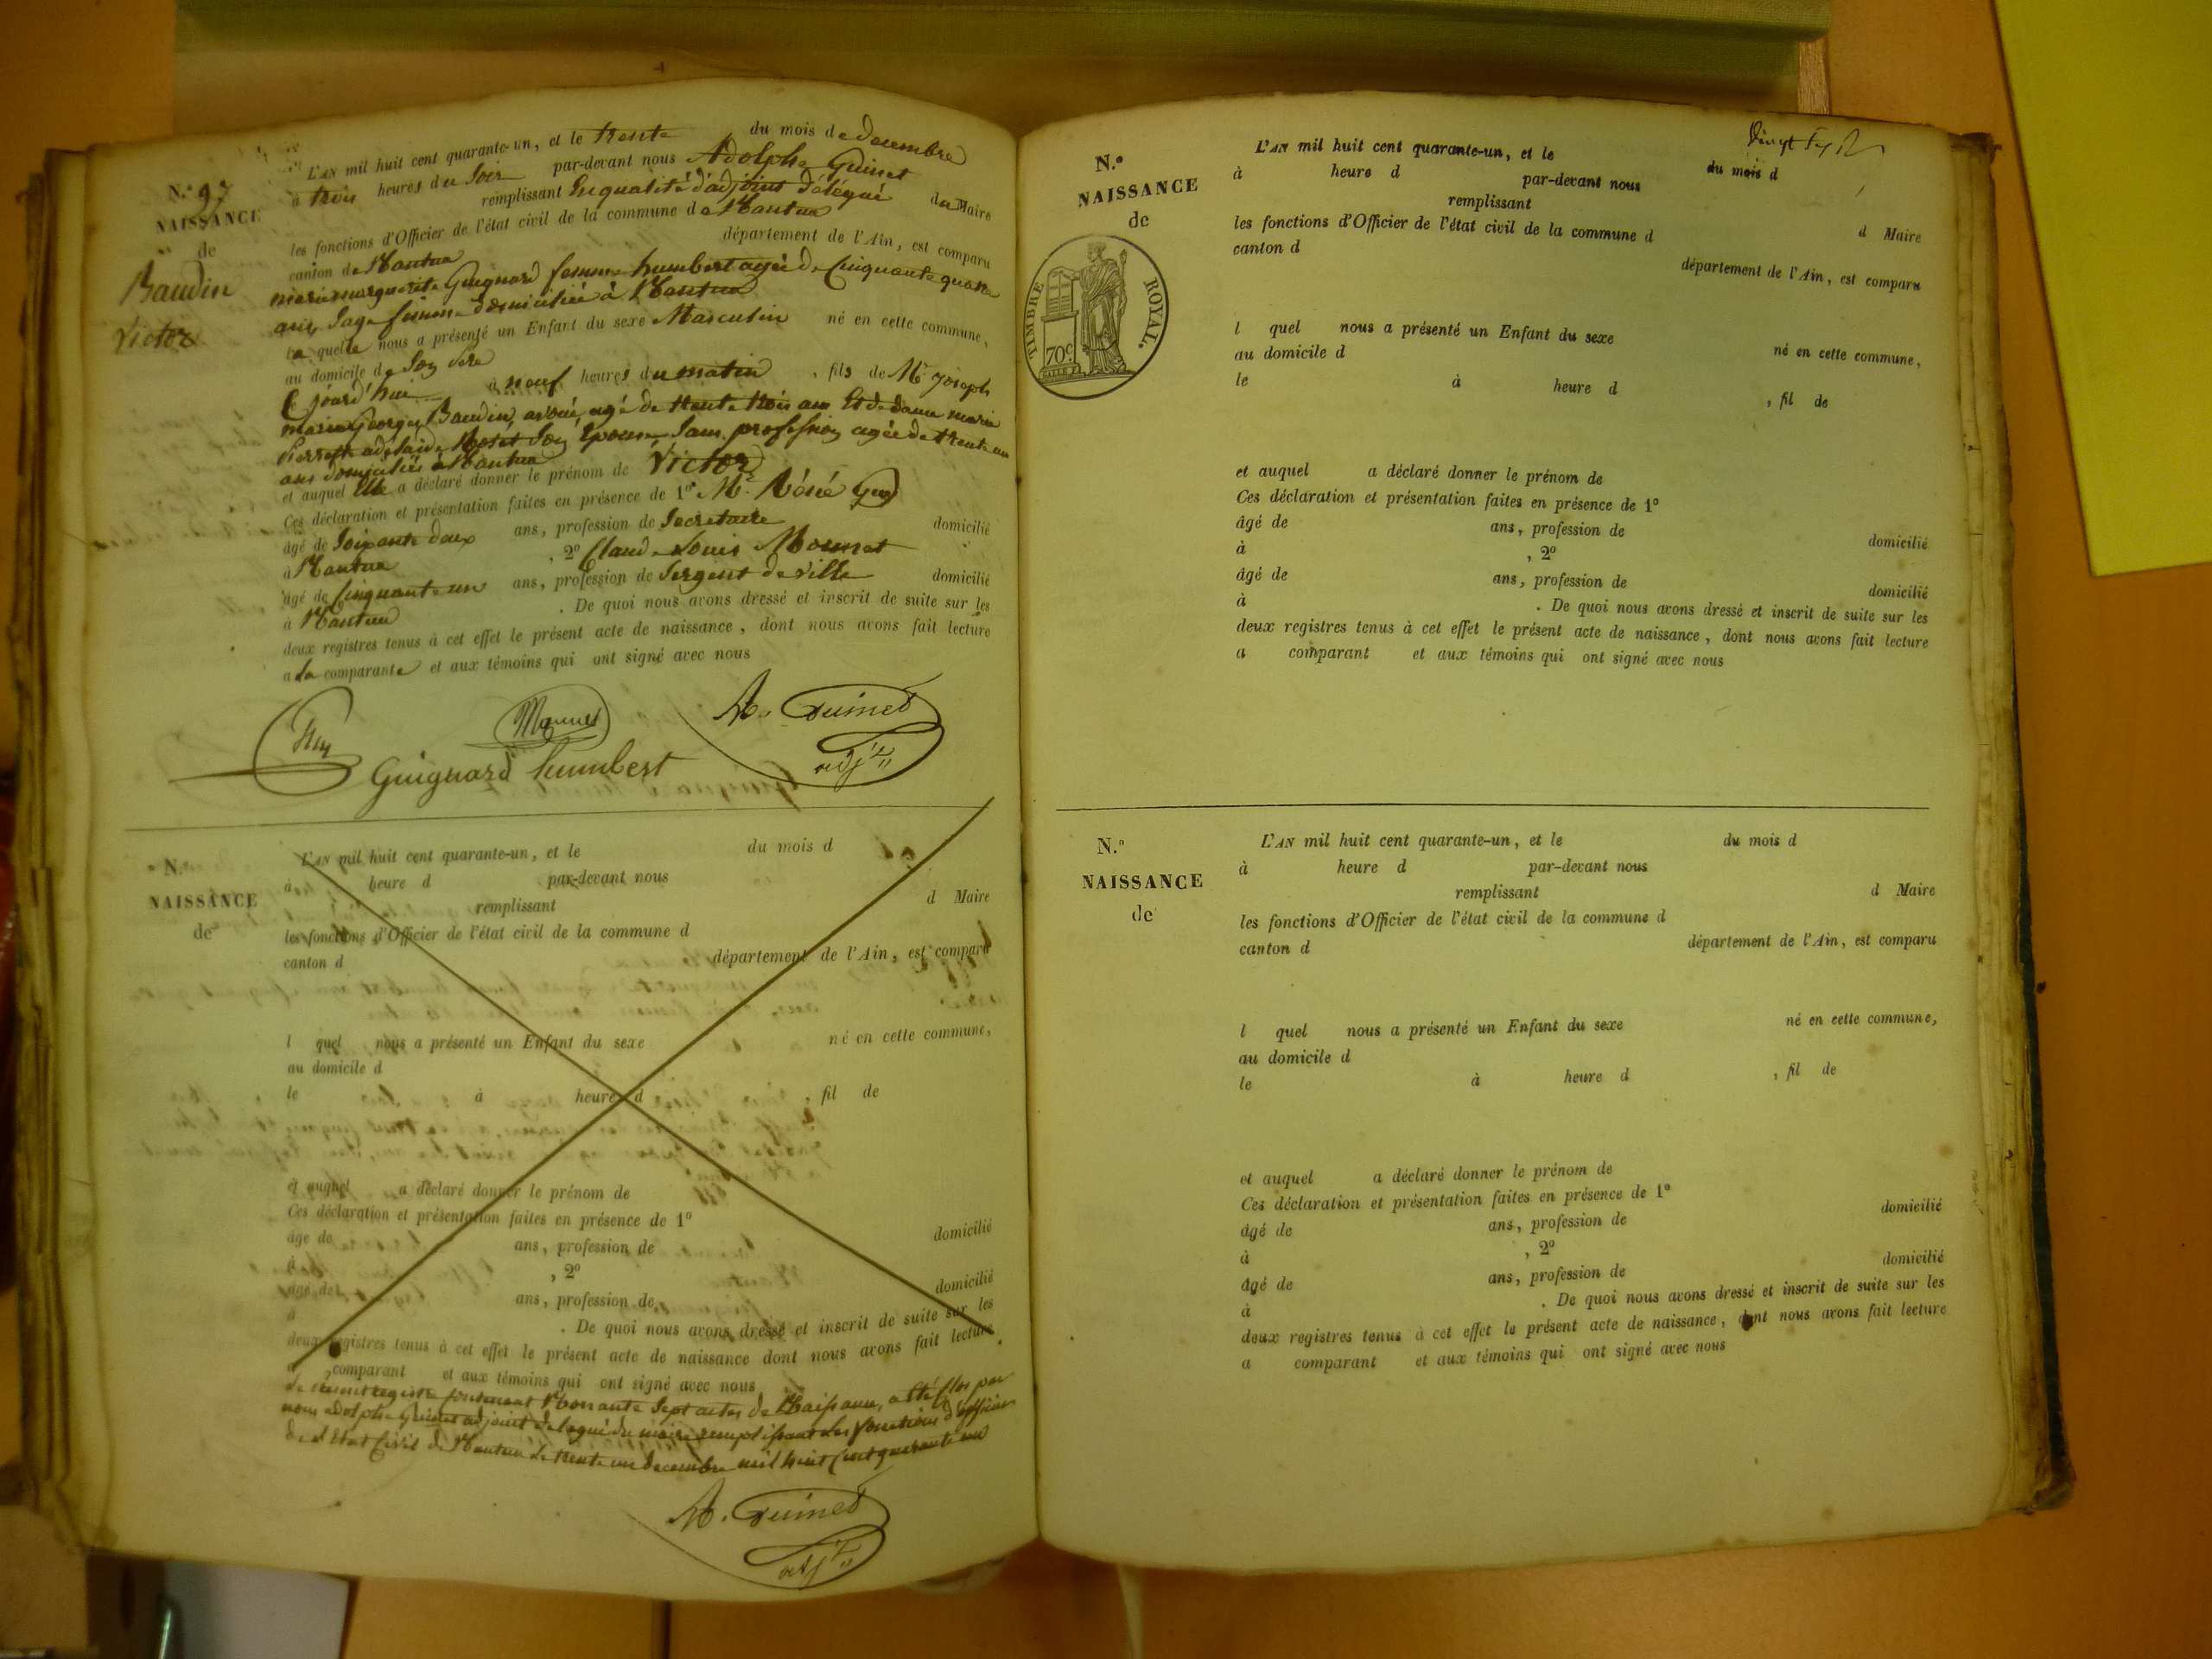 N.º 97
NAISSANCE
de
Baudin
Victor
L'AN mil huit cent quarante-un, et le trente du mois de decembre
à trois heures du Soir par-devant nous Adolphe Guinet
remplissant En qualité d'adjoint délégué du Maire
les fonctions d'Officier de l'état civil de la commune de Nantua
canton de Nantua département de l'Ain, est comparu
marie marguerite Guignard femme humbert agée de Cinquante quatre
ans, Sage femme domiciliée à Nantua
la quelle nous a présenté un Enfant du sexe Masculin né en cette commune,
au domicile de Son Père
Ce jourd'hui à neuf heures du matin, fils de Mr Joseph
marie Georges Baudin, avoué, agé de trente trois ans Et de dame marie
Pierrette adelaide Son Epouse Sans profession agée de trente un
ans domiciliés à Nantua
et auquel Elle a déclaré donner le prénom de Victor
Ces déclaration et présentation faites en présence de 1º Mr Guy
âgé de Soixante deux ans, profession de Secretaire domicilié
à Nantua, 2º Claude Louis
âgé de Cinquante un ans, profession de Sergent de ville domicilié
à Nantua. De quoi nous avons dressé et inscrit de suite sur les
deux registres tenus à cet effet le présent acte de naissance, dont nous avons fait lecture
a la comparante et aux témoins qui ont signé avec nous
A. Guinet
adjt
Guignard humbert
N.º
NAISSANCE
de
L'AN mil huit cent quarante-un, et le du mois d
à heure d par-devant nous
remplissant d Maire
les fonctions d'Officier de l'état civil de la commune d
canton d département de l'Ain, est comparu
l quel nous a présenté un Enfant du sexe né en cette commune,
au domicile d
le à heure d , fil de
et auquel a déclaré donner le prénom de
Ces déclaration et présentation faites en présence de 1º
âgé de ans, profession de domicilié
à , 2º
âgé de ans, profession de domicilié
à . De quoi nous avons dressé et inscrit de suite sur les
deux registres tenus à cet effet le présent acte de naissance dont nous avons fait lecture
a comparant et aux témoins qui ont signé avec nous
Le présent registre contenant Nonante Sept actes de Naissance, a été clos par
nous adolphe Guinet adjoint delegué du maire remplissant les fonctions d'officier
de l'Etat Civil de Nantua le trente un decembre mil huit Cent quarante un
A. Guinet
adjt
N.º
NAISSANCE
de
TIMBRE ROYAL.
70c.
L'AN mil huit cent quarante-un, et le du mois d
à heure d par-devant nous
remplissant d Maire
les fonctions d'Officier de l'état civil de la commune d
canton d département de l'Ain, est comparu
l quel nous a présenté un Enfant du sexe né en cette commune,
au domicile d
le à heure d , fil de
et auquel a déclaré donner le prénom de
Ces déclaration et présentation faites en présence de 1º
âgé de ans, profession de domicilié
à , 2º
âgé de ans, profession de domicilié
à . De quoi nous avons dressé et inscrit de suite sur les
deux registres tenus à cet effet le présent acte de naissance, dont nous avons fait lecture
a comparant et aux témoins qui ont signé avec nous
N.º
NAISSANCE
de
L'AN mil huit cent quarante-un, et le du mois d
à heure d par-devant nous
remplissant d Maire
les fonctions d'Officier de l'état civil de la commune d
canton d département de l'Ain, est comparu
l quel nous a présenté un Enfant du sexe né en cette commune,
au domicile d
le à heure d , fil de
et auquel a déclaré donner le prénom de
Ces déclaration et présentation faites en présence de 1º
âgé de ans, profession de domicilié
à , 2º
âgé de ans, profession de domicilié
à . De quoi nous avons dressé et inscrit de suite sur les
deux registres tenus à cet effet le présent acte de naissance, dont nous avons fait lecture
a comparant et aux témoins qui ont signé avec nous